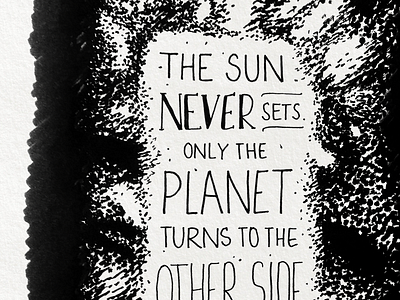 THE SUN
NEVER SETS.
ONLY THE
PLANET
TURNS TO THE
OTHER SIDE